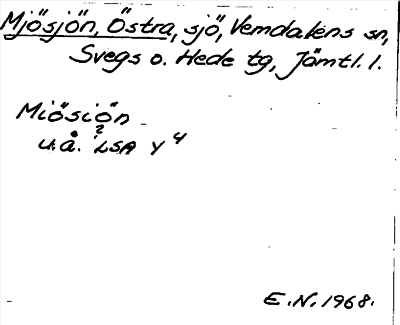 Mjösjön, Östra, sjö, Vemdalens sn,
Svegs o. Hede tg, Jämtl. l.
Miösiön
u.å. LSA Y 4
E.N. 1968.